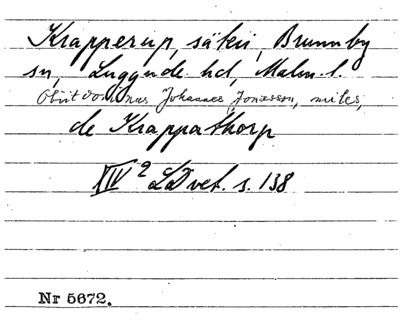 Krapperup, säteri, Brunnby
sn, Luggude hd, Malm. l.
Obiit dominus Johannes Jonasson, miles,
de Krappathorp
XIV 2 LDvet. s. 138
Nr 5672.